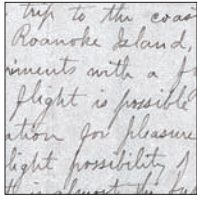 trip to the coast
Roanoke Island,
iments with a
flight is possible
ation for pleasure
light possibility
is almost the